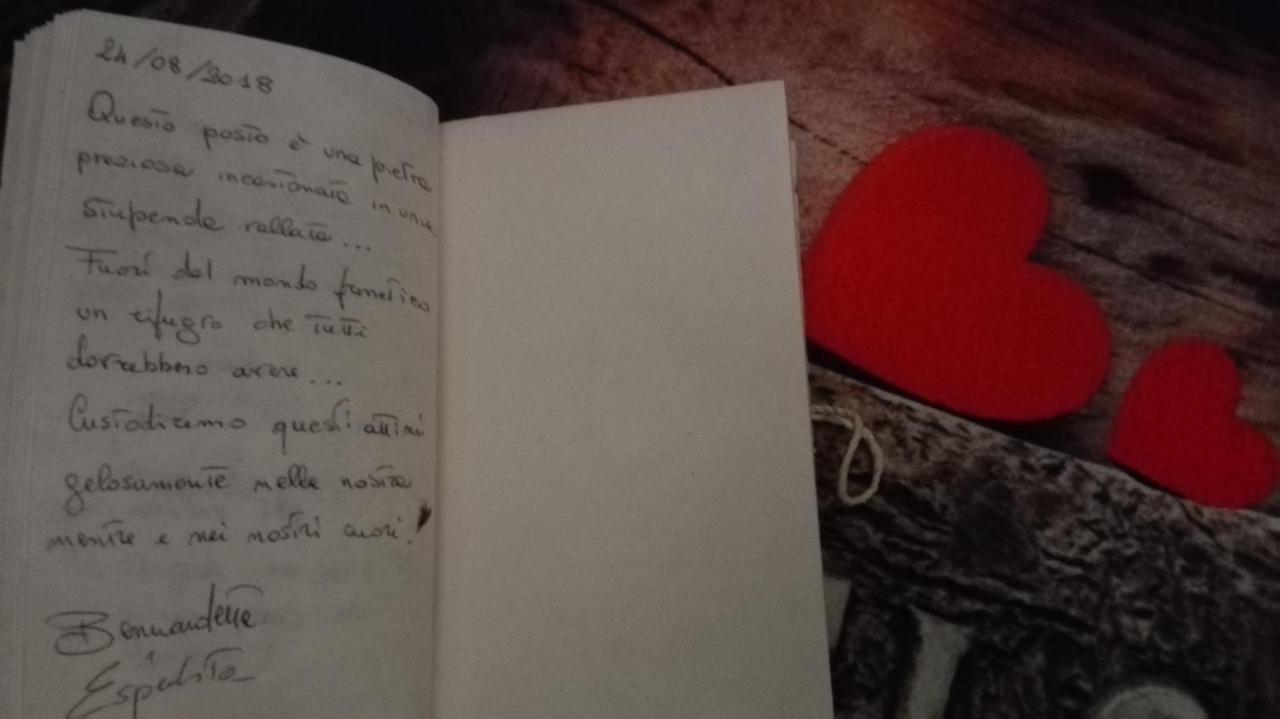 24/08/2018
Questo posto è una pietra
preziosa incastonata in una
stupenda vallata...
Fuori dal mondo frenetico
un rifugio che tutti
dovrebbero avere...
Custodiremo questi attimi
gelosamente nelle nostre
mente e nei nostri cuori!
Bernardette
Espedito